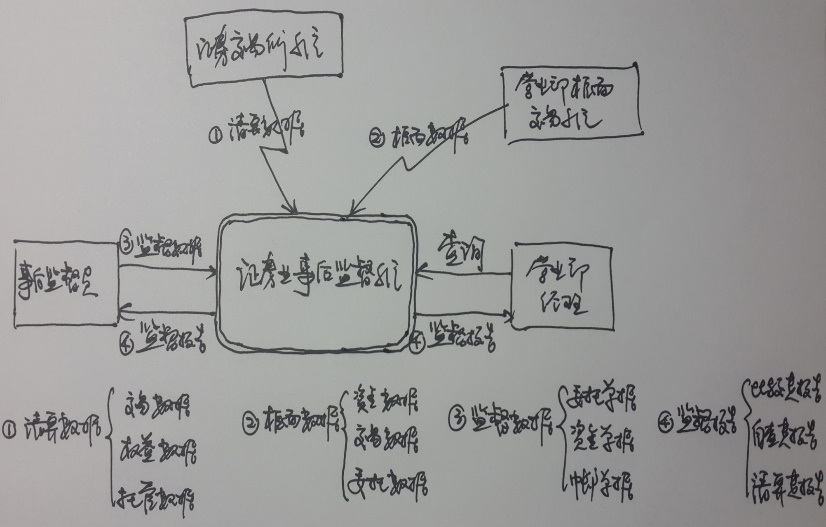 证券交易所系统
营业部柜面
交易系统
①清算数据
②柜面数据
③监督数据
查询
事后监督员
证券业事后监督系统
营业部
经理
④监督报告
④监督报告
①清算数据
交易数据
权益数据
托管数据
②柜面数据
资金数据
交易数据
委托数据
③监督数据
委托单据
资金单据
中邮单据
④监督报告
比较类报告
自查类报告
清算类报告